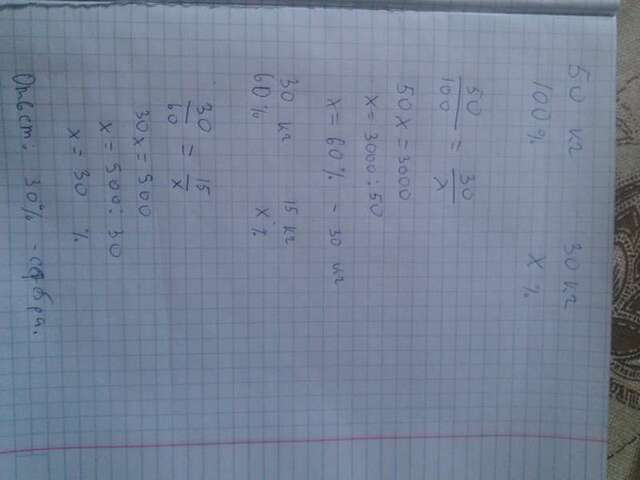 50 кг 30 кг
100% X %
50/100 = 30/x
50x = 3000
x = 3000 : 50
x = 60% - 30 кг
30 кг 15 кг
60% X %
30/60 = 15/x
30x = 900
x = 900 : 30
x = 30 %
Ответ: 30% -